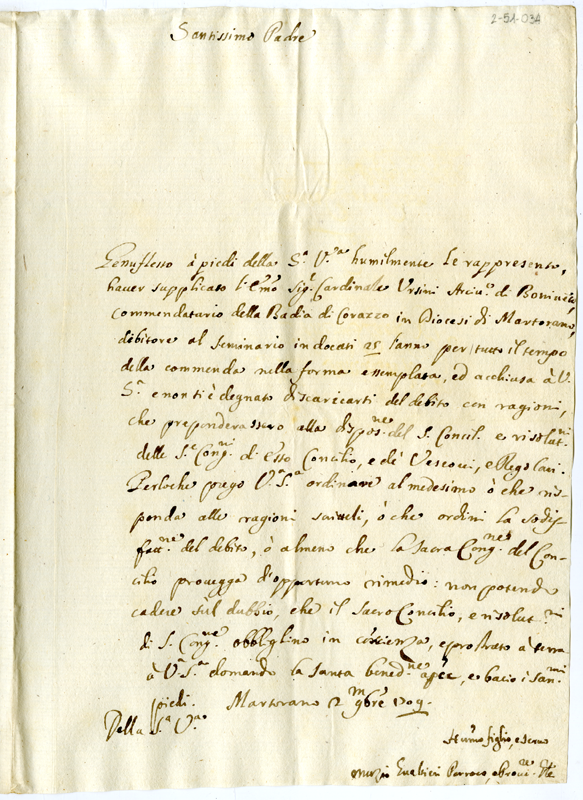 2-51-03A
Santissimo Padre
Genuflesso à piedi della S.ª V.ra humilmente le rappresento,
haver supplicato l'Emo Sig.r Cardinale Ursini Arciv.o di
Commendatario della Badia di Corazzo in Diocesi di Martorano,
debitore al seminario in docati 25 l'anno per tutto il tempo
della commenda nella forma essemplata, ed acchiusa à V.
S.ª e non s'è degnato discaricarsi del debito con ragioni,
che preponderassero alla dispos.ne del S. Concil. e risolut.ni
delle S.e Cong.ni di esso Concilio, e de' Vescovi, e Regolari.
Perloche prego V.ª S.ª ordinare al medesimo ò che ris-
ponda alle ragioni, ò che ordini la sodis-
fatt.ne del debito, ò almeno che la Sacra Cong.ne del Con-
cilio provegga d'opportuno rimedio: non potendo
cadere sul dubbio, che il sacro Concilio, e risolut.ni
di S. Cong.ne obblighino in coscienza, e prostrato à terra
à V.ª S.ª domando la santa bened.ne, e bacio i san.mi
piedi. Martorano 2 9bre 1709.
Della S.ª V.ra
Hum.o figlio, e servo
Muzio Parroco,